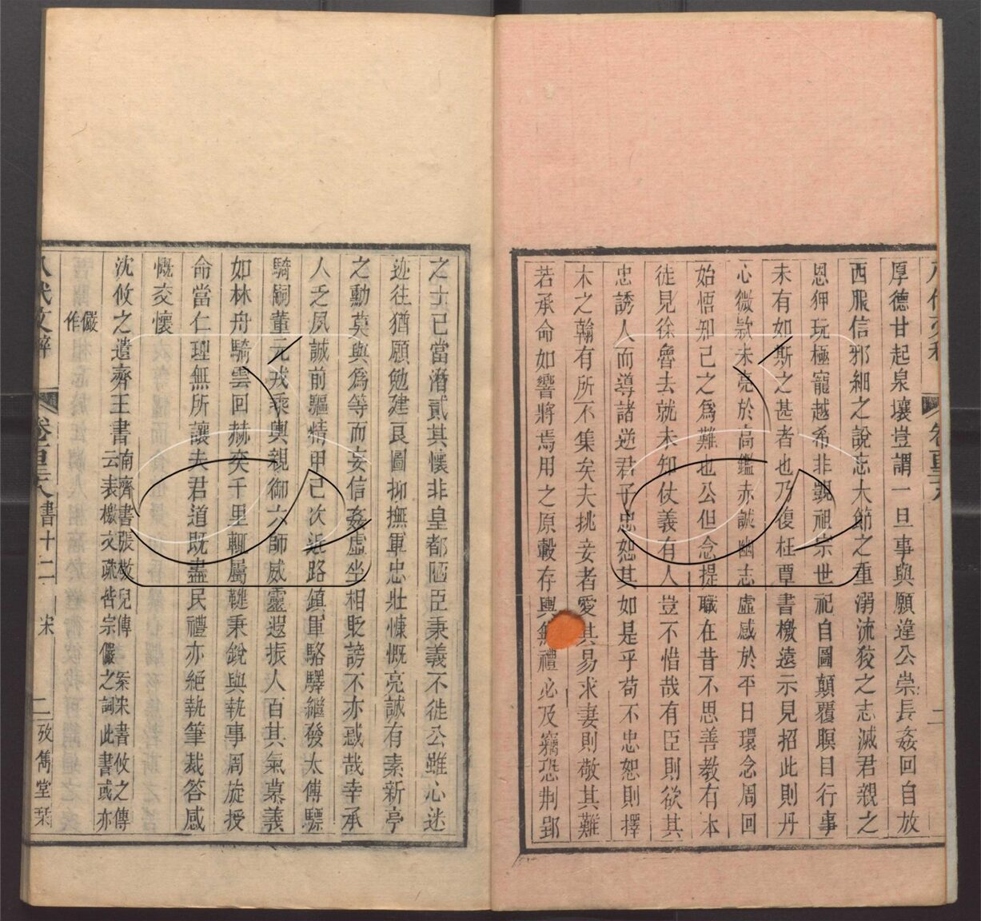 厚德甘起泉壤豈謂一旦事與願違公崇長姦回自放
西服信邪細之說忘大節之重溺流狡之志滅君親之
恩狎玩極寵越希非覬祖宗世祀自圖顛覆瞑目行事
未有如斯之甚者也乃復枉覃書檄遠示見招此則丹
心微款未亮於高鑑赤誠幽志虛感於平日環念周回
始悟知己之為難也公但念提職在昔不思善教有本
徒見徐魯去就未知仗義有人豈不惜哉有臣則欲其
忠誘人而導諸逆君子忠恕其如是乎苟不忠恕則擇
木之翰有所不集矣夫挑妾者愛其易求妻則敬其難
若承命如響將焉用之原穀存興無禮必及竊恐荆郢
之士已當潛貳其懷非皇都陋臣秉義不徙公雖心迷
迹往猶願勉建良圖抑撫軍忠壯慷慨亮誠有素新亭
之勳莫與為等而妄信姦虛坐相貶謗不亦惑哉幸承
人乏夙誠前驅精甲已次近路鎮軍駱驛繼發太傅驃
騎嗣董元戎乘輿親御六師威靈遐振人百其氣慕義
如林舟騎雲回赫奕千里輒屬鞬秉銳與執事周旋授
命當仁理無所讓夫君道既盡民禮亦絕執筆裁答感
慨交懷
沈攸之遺齊王書南齊書張敬兒傳 案宋書攸之傳
云表檄文疏皆宗儼之詞此書或亦
儼
作
八代文粹 卷百三八 書十二 宋 二 攷雋堂栞